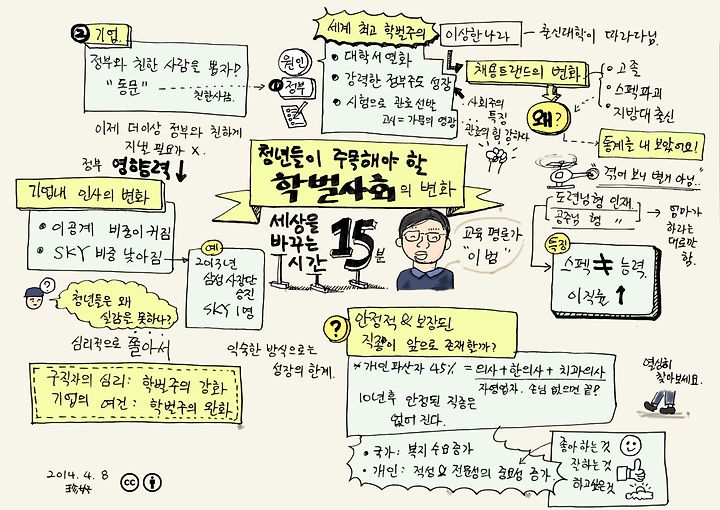 청년들이 주목해야 할
학벌사회의 변화
세상을
바꾸는
시간
15분
교육 평론가
"이범"
세계 최고 학벌주의
• 대학서열화
• 강력한 정부주도 성장
• 시험으로 관료선발
고시 = 가문의 영광
이상한 나라 - 출신대학이 따라다님.
원인
① 정부
② 기업.
정부와 친한 사람을 뽑자!
"동문"
친한사람.
이제 더이상 정부와 친하게
지낼 필요가 X.
정부 영향력↓
기업내 인사의 변화
• 이공계 비중이 커짐
• SKY 비중 낮아짐
예
2013년
삼성 사장단
승진
SKY 1명
?
청년들은 왜
실감을 못하나?
심리적으로 쫄아서
익숙한 방식으로는
성장의 한계.
구직자의 심리: 학벌주의 강화
기업의 여건: 학벌주의 완화
사회주의
특징
관료의 힘 강하다
채용트랜드의 변화
• 고졸
• 스펙파괴
• 지방대 출신
왜?
통계를 내 보았어요!
"겪어 보니 별거 아님.."
도련님형 인재
공주님 형 "
엄마가
하라는
대로만
함.
특징
스펙 ≠ 능력.
이직률 ↑
?
안정적 & 보장된
직종이 앞으로 존재할까?
* 개인파산자 45% = 의사+한의사+치과의사
자영업자. 손님 없으면 끝?
10년후 안정된 직종은
없어 진다.
• 국가: 복지 수요증가
• 개인: 적성 & 전용성의 중요성 증가.
좋아하는 것
잘하는 것
하고싶은것
열심히
찾아보세요.
2014. 4. 8
cc